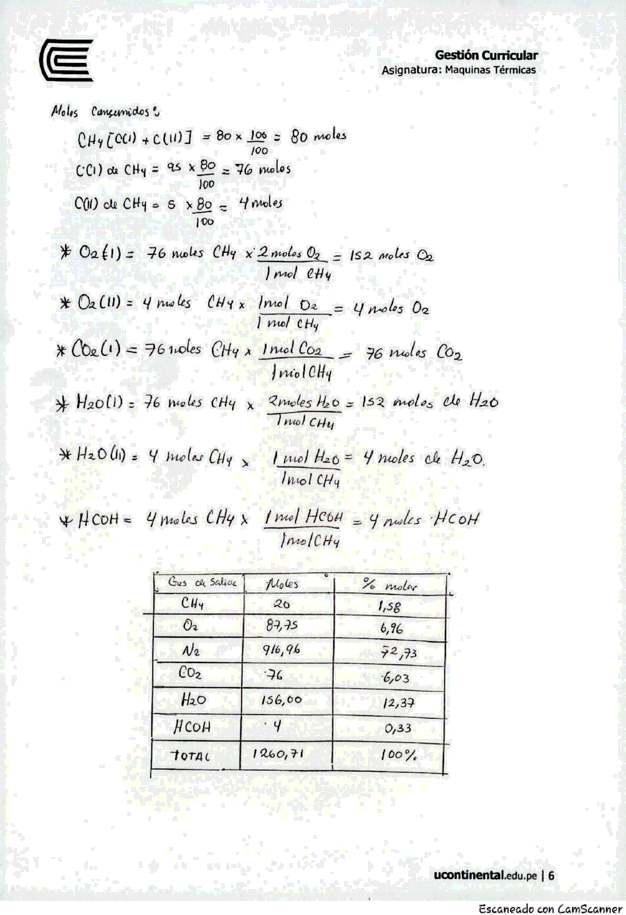 Gestión Curricular
Asignatura: Maquinas Térmicas
Moles Consumidos:
CH4 [C(I) + C(II)] = 80 x 100/100 = 80 moles
C(I) de CH4 = 95 x 80/100 = 76 moles
C(II) de CH4 = 5 x 80/100 = 4 moles
* O2(I) = 76 moles CH4 x 2 moles O2/1 mol CH4 = 152 moles O2
* O2(II) = 4 moles CH4 x 1 mol O2/1 mol CH4 = 4 moles O2
* CO2(I) = 76 moles CH4 x 1 mol CO2/1 mol CH4 = 76 moles CO2
* H2O(I) = 76 moles CH4 x 2 moles H2O/1 mol CH4 = 152 moles de H2O
* H2O(II) = 4 moles CH4 x 1 mol H2O/1 mol CH4 = 4 moles de H2O.
* HCOH = 4 moles CH4 x 1 mol HCOH/1 mol CH4 = 4 moles HCOH
Gas de Salida Moles % molar
CH4 20 1,58
O2 87,75 6,96
N2 916,96 72,73
CO2 76 6,03
H2O 156,00 12,37
HCOH 4 0,33
TOTAL 1260,71 100%
ucontinental.edu.pe | 6
Escaneado con CamScanner